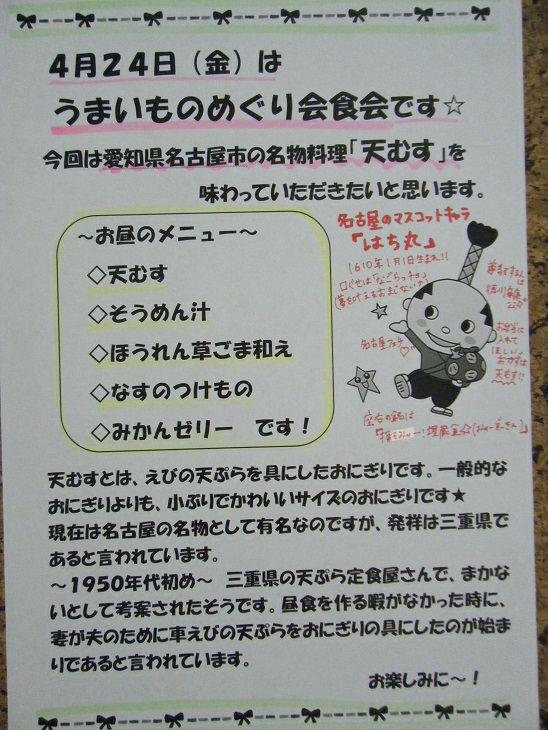 4月24日（金）は
うまいものめぐり会食会です☆
今回は愛知県名古屋市の名物料理「天むす」を
味わっていただきたいと思います。
～お昼のメニュー～
◇天むす
◇そうめん汁
◇ほうれん草ごま和え
◇なすのつけもの
◇みかんゼリー　です！
名古屋のマスコットキャラ
「はち丸」
1610年1月1日生まれ!!
口ぐせは「なごらっチョ」
名古屋
徳川家康
お弁当に
入れて
ほしい
おかずは
天むす!!
座右の銘は
埋蔵金
天むすとは、えびの天ぷらを具にしたおにぎりです。一般的な
おにぎりよりも、小ぶりでかわいいサイズのおにぎりです★
現在は名古屋の名物として有名なのですが、発祥は三重県で
あると言われています。
～1950年代初め～　三重県の天ぷら定食屋さんで、まかな
いとして考案されたそうです。昼食を作る暇がなかった時に、
妻が夫のために車えびの天ぷらをおにぎりの具にしたのが始ま
りであると言われています。
お楽しみに～！